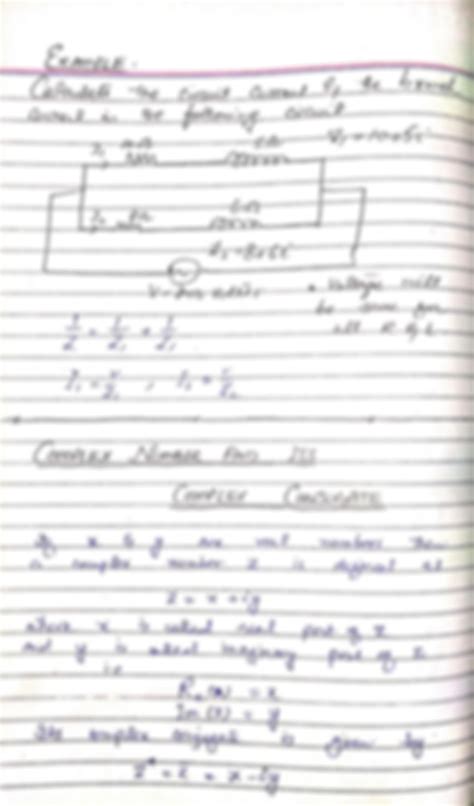 EXAMPLE.
Calculate the circuit current & the branch
current in the following circuit
I₁
I₂
Z₂ = 8+6i
• Voltage will
be same for
all R & L
1/Z = 1/Z₁ + 1/Z₂
I₁ = V/Z₁ , I₂ = V/Z₂
COMPLEX NUMBER AND ITS
COMPLEX CONJUGATE
If x & y are real numbers then
a complex number Z is defined as
Z = x + iy
where x is called real part of Z
and y is called imaginary part of Z.
i.e
Re(Z) = x
Im(Z) = y
The complex conjugate is given by
Z* = Z̄ = x - iy